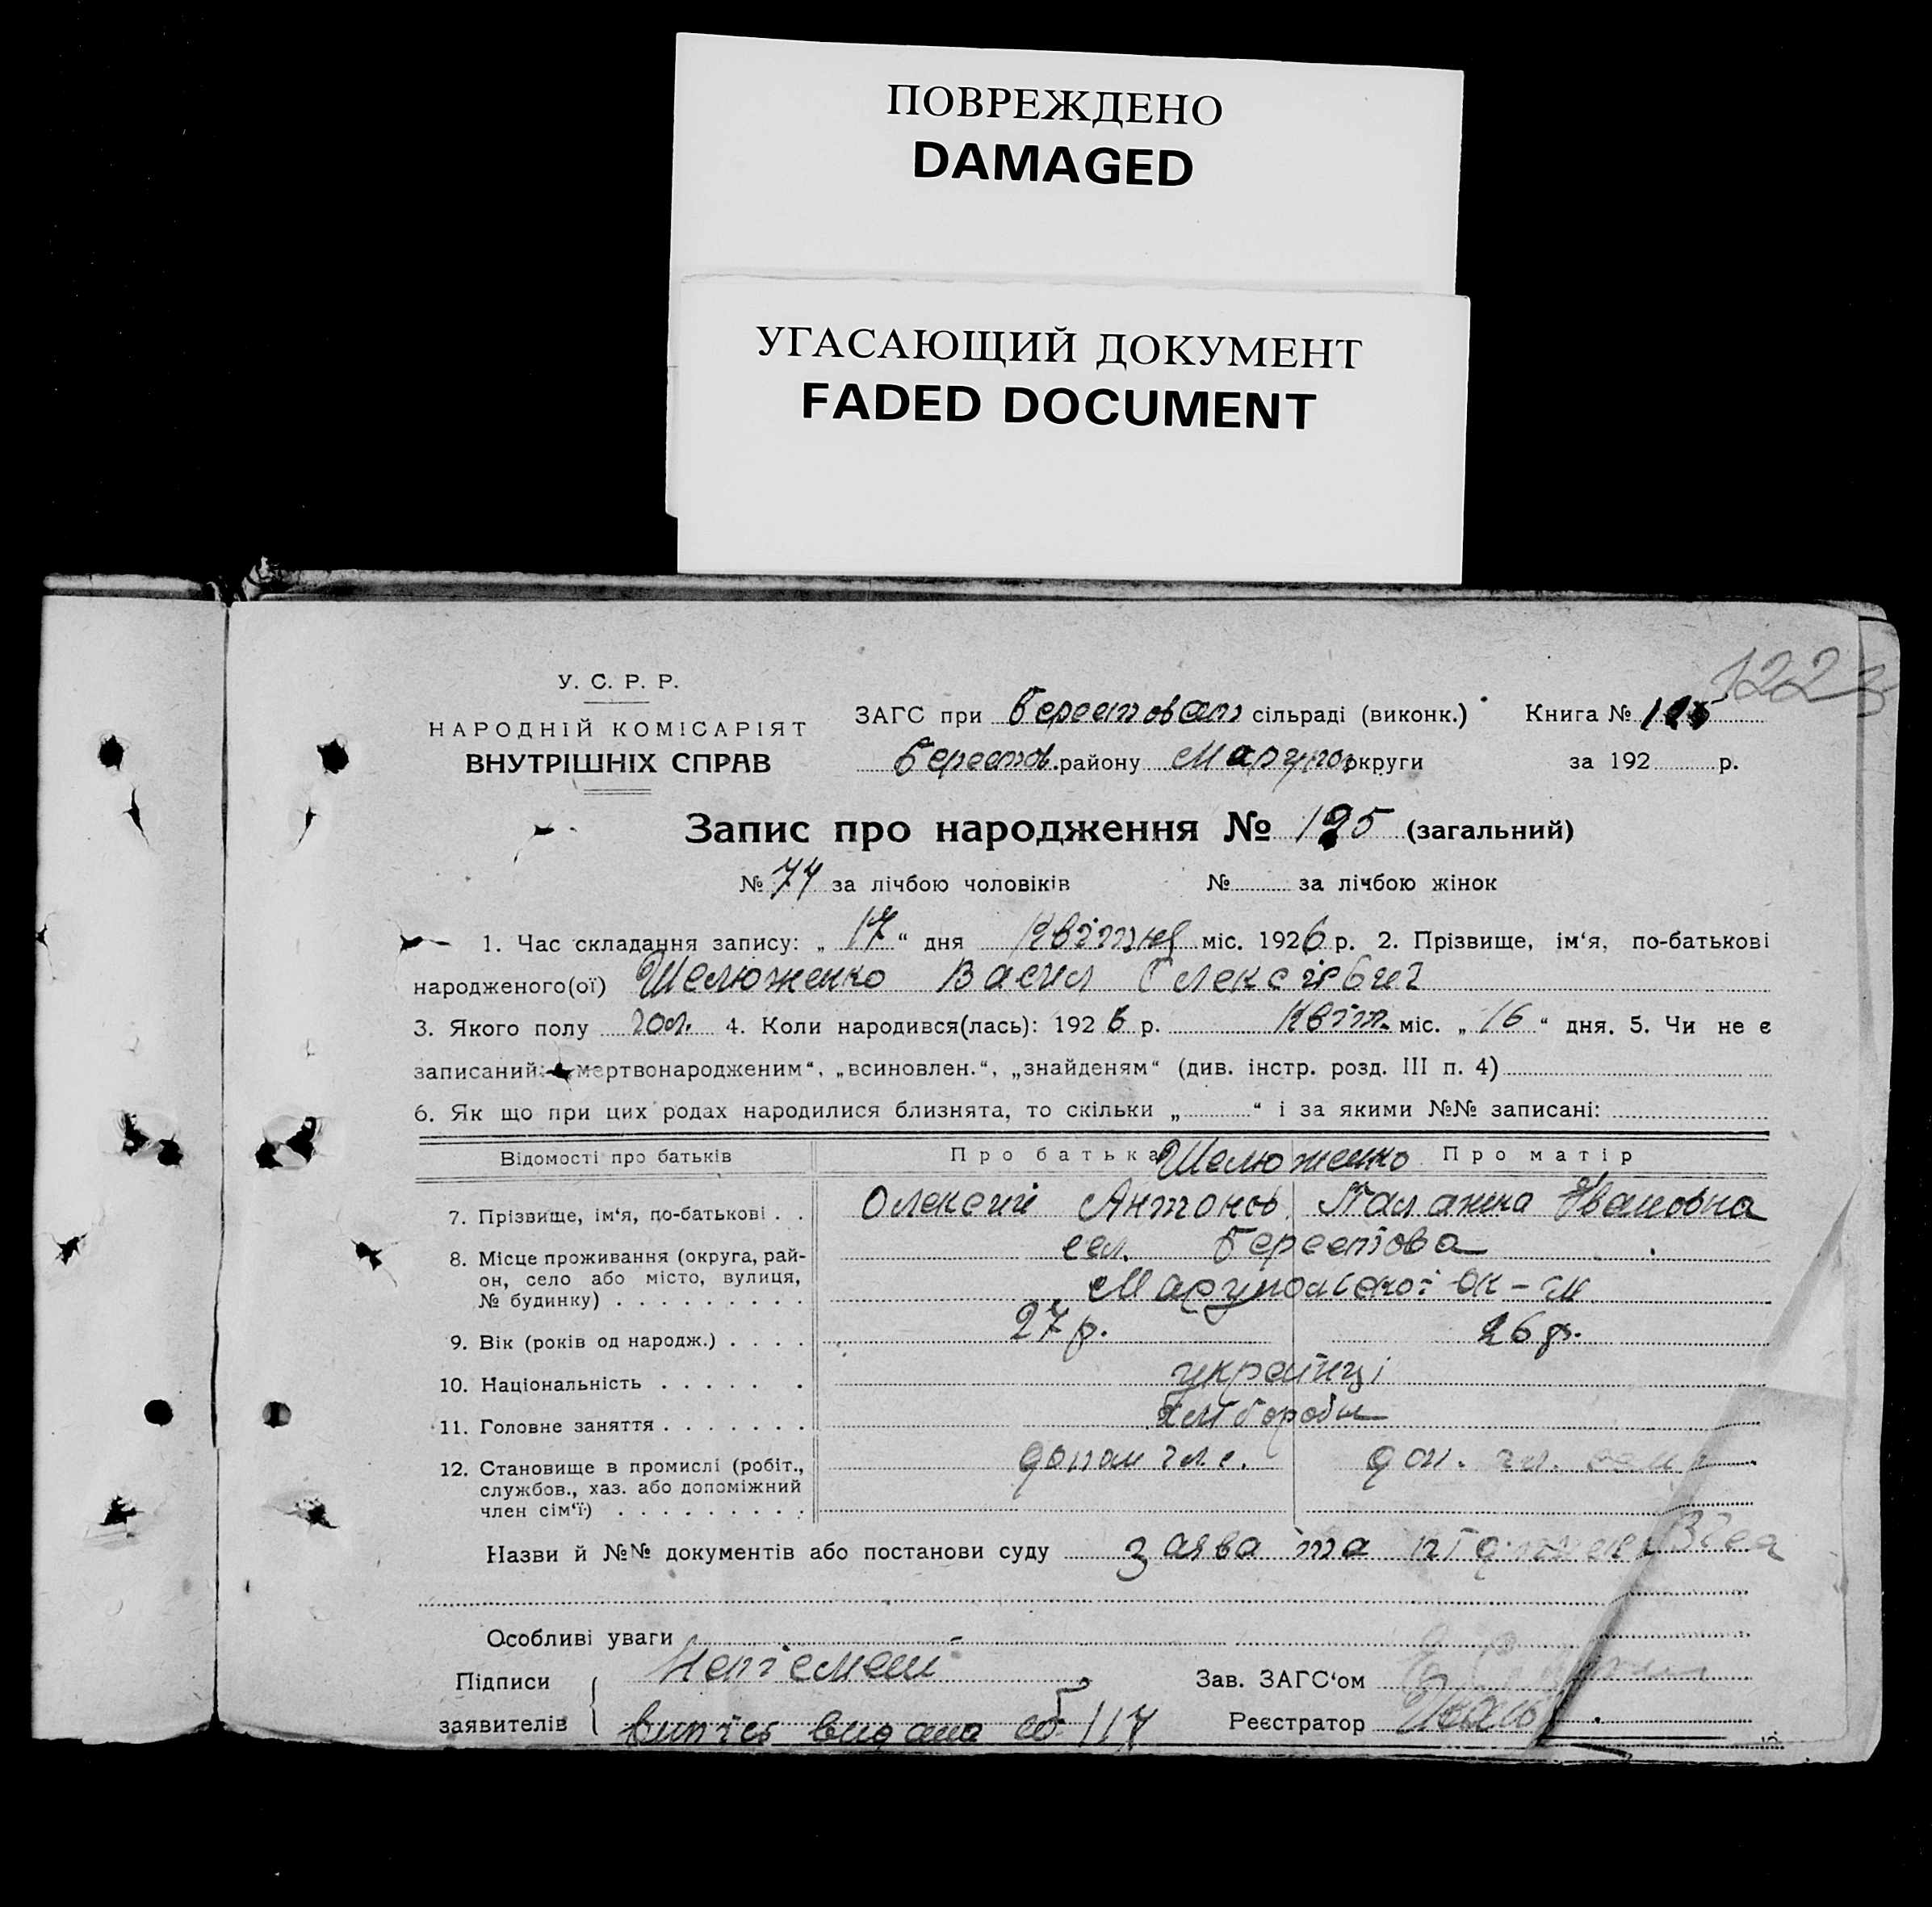 ПОВРЕЖДЕНО
DAMAGED
УГАСАЮЩИЙ ДОКУМЕНТ
FADED DOCUMENT
1223
У. С. Р. Р.
НАРОДНІЙ КОМІСАРІЯТ
ВНУТРІШНІХ СПРАВ
ЗАГС при Берестоват сільраді (виконк.) Книга №
Берестов. району Маріуп округи за 192 р.
Запис про народження № 125 (загальний)
№ 74 за лічбою чоловіків № за лічбою жінок
1. Час складання запису: „ 17 “ дня Квітня міс. 1926 р. 2. Прізвище, ім‘я, по-батькові
народженого(ої) Шелюженко Васил Олексієвич
3. Якого полу чол. 4. Коли народився(лась): 1926 р. Квіт. міс. „ 16 “ дня. 5. Чи не є
записаний: „мертвонародженим“, „всиновлен.“, „знайденям“ (див. інстр. розд. III п. 4)
6. Як що при цих родах народилися близнята, то скільки „ “ і за якими №№ записані:
Відомості про батьків Про батька Шелюженко Про матір
7. Прізвище, ім‘я, по-батькові . . Олексій Антонов. Палажка Івановна
8. Місце проживання (округа, рай- сел. Берестова
он, село або місто, вулиця,
№ будинку) . . . . . . . . . Маріупольскої ок-ги
9. Вік (років од народж.) . . . . 27 р. 26 р.
10. Національність . . . . . . українці
11. Головне заняття . . . . . . . хлібороби
12. Становище в промислі (робіт., допом чл. с. доп. чл. сем
службов., хаз. або допоміжний
член сім‘ї) . . . . . . . . .
Назви й №№ документів або постанови суду заява та
Особливі уваги
Підписи Неписмен
Зав. ЗАГС‘ом
заявителів випись видана об 117 Реєстратор